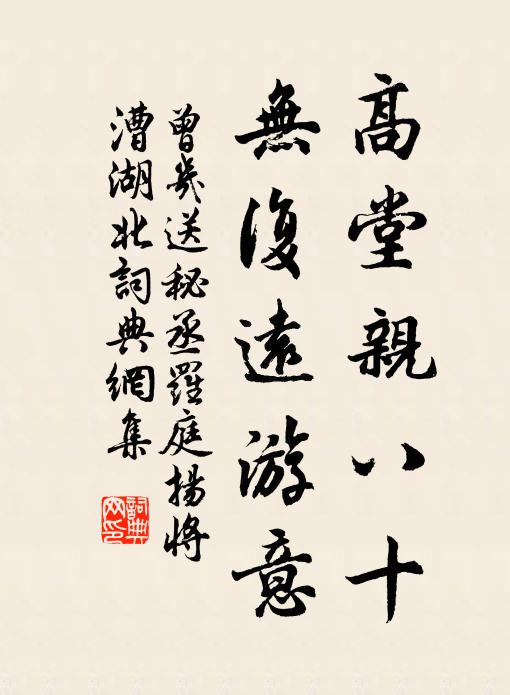 高堂親八十
無復遠游意
曾幾送秘丞羅庭揚將
漕湖北詞典網集
詞典網印